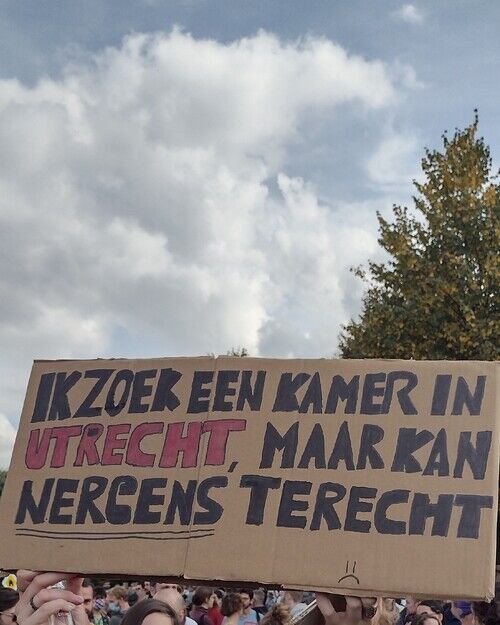 IK ZOEK EEN KAMER IN
UTRECHT, MAAR KAN
NERGENS TERECHT